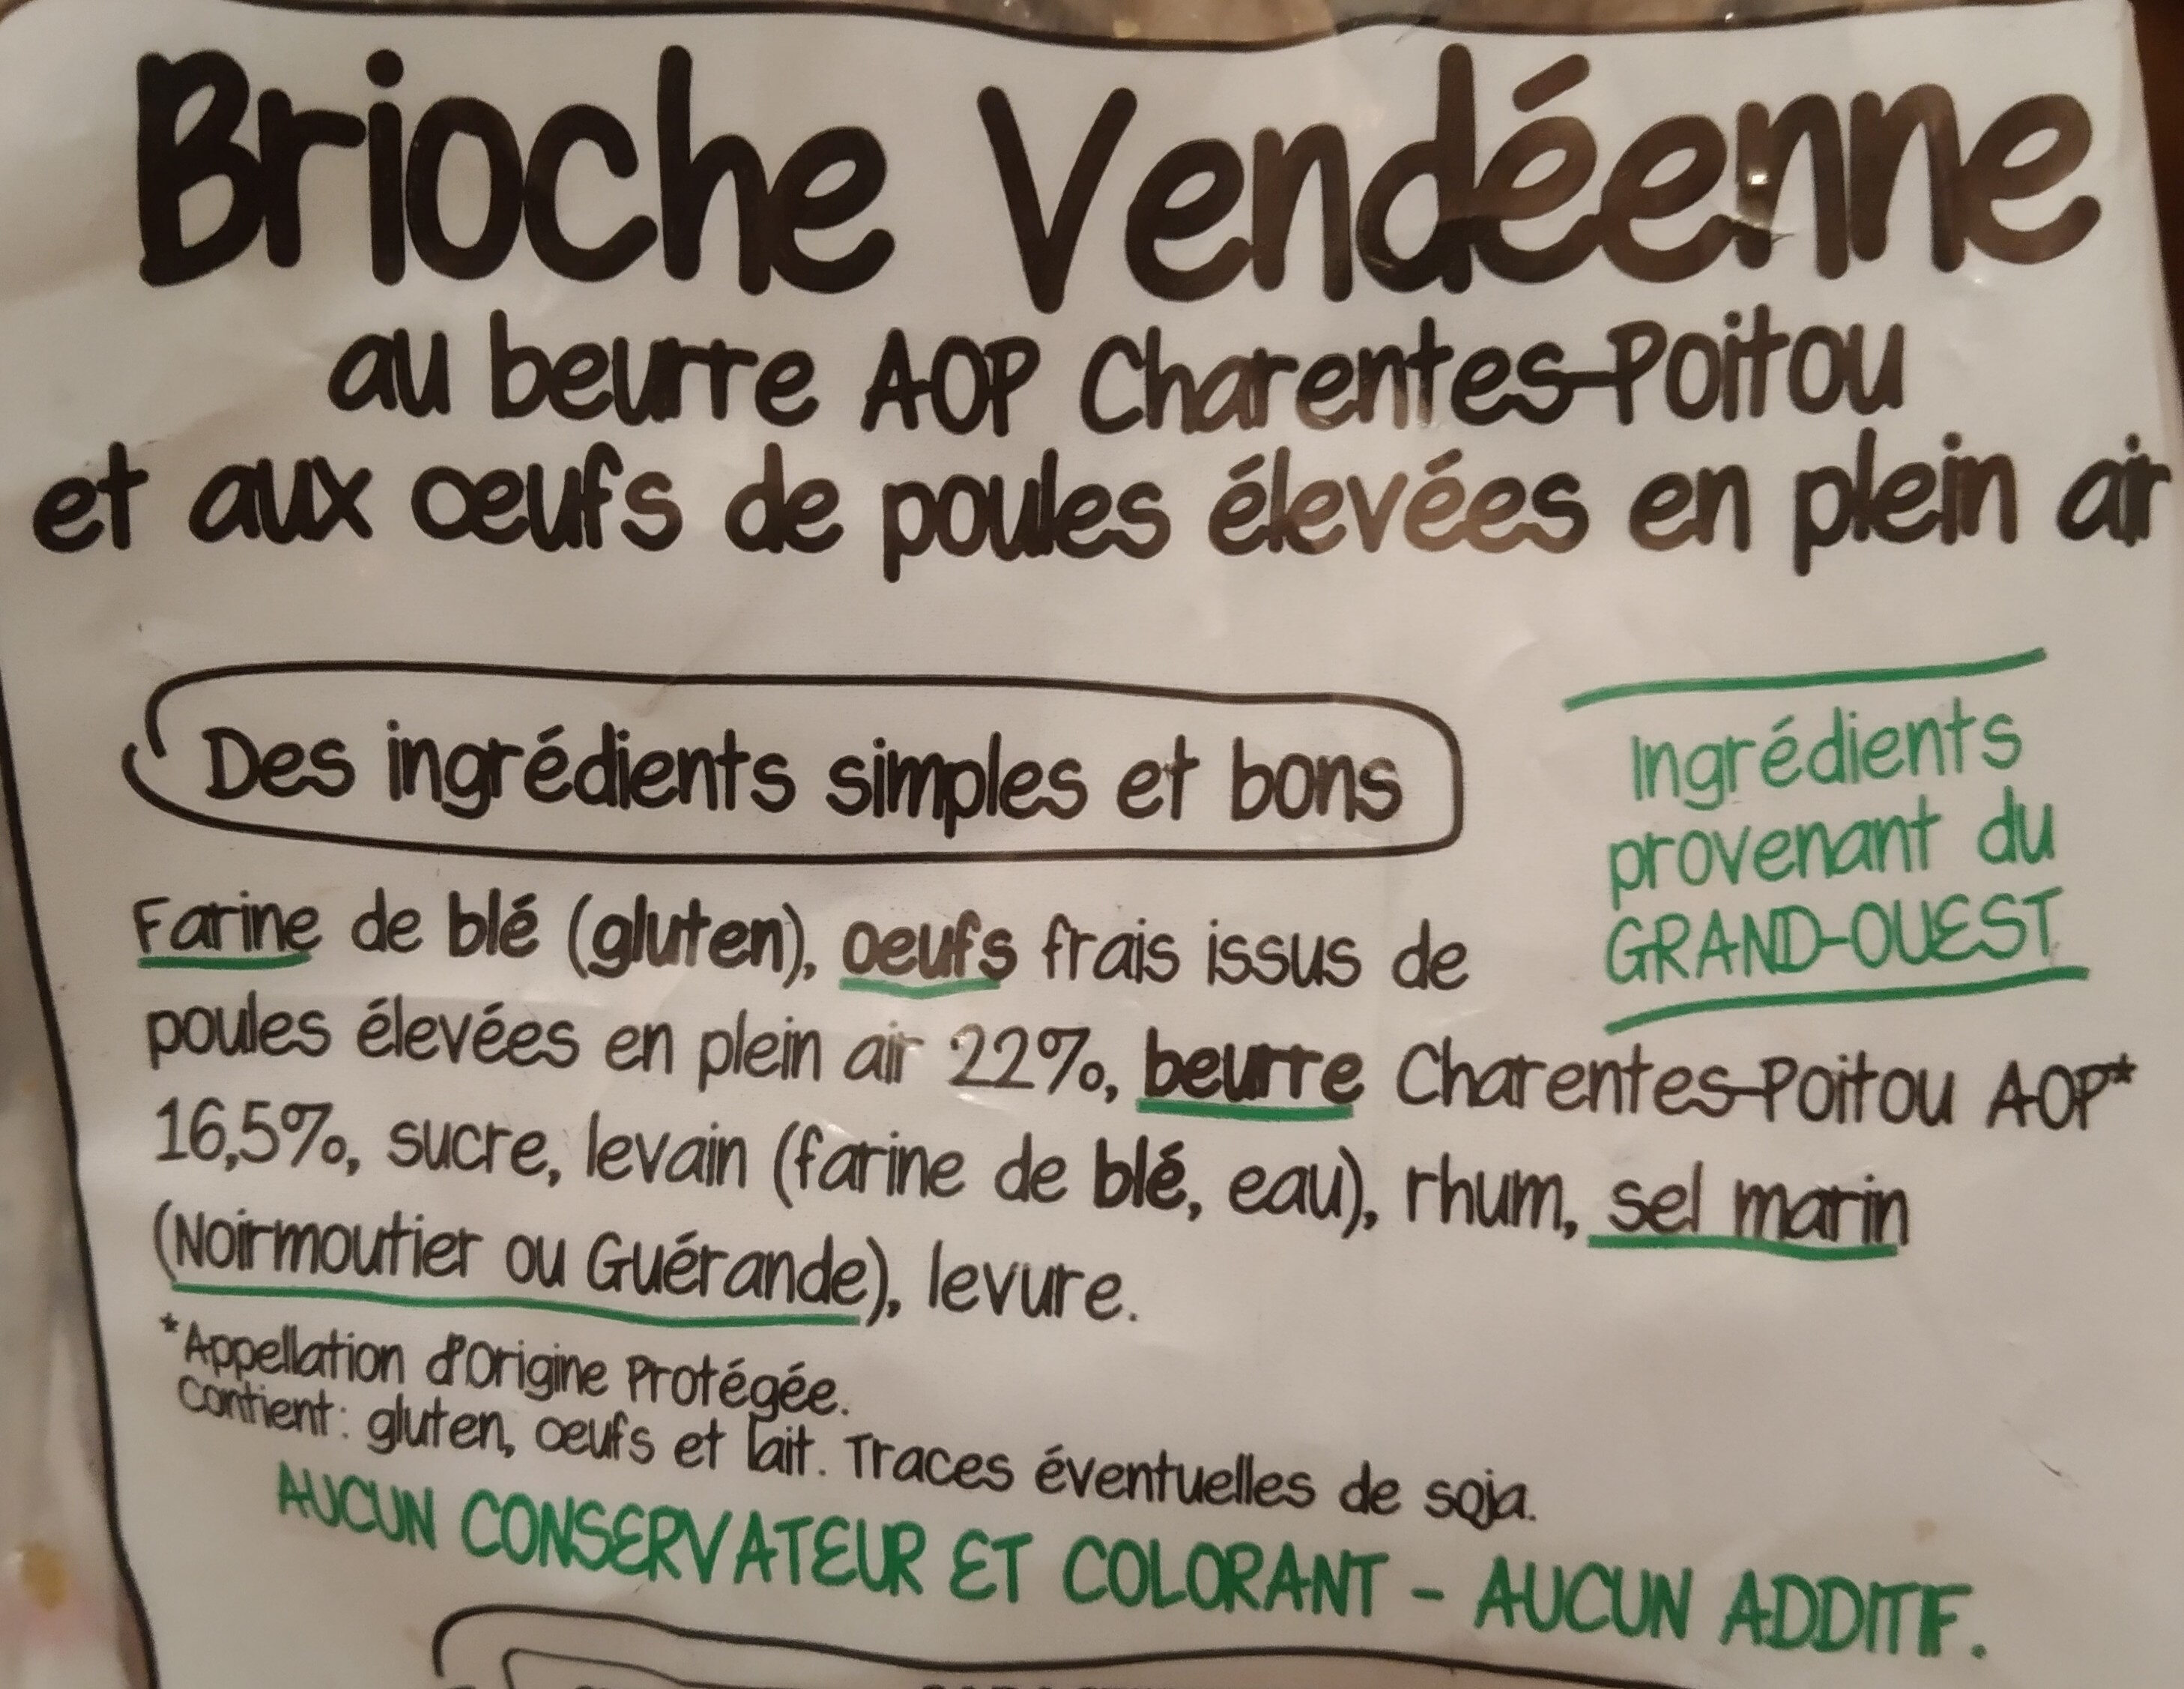 Brioche Vendéenne
au beurre AOP Charentes-Poitou
et aux œufs de poules élevées en plein air
Des ingrédients simples et bons
Ingrédients
provenant du
GRAND-OUEST
Farine de blé (gluten), oeufs frais issus de
poules élevées en plein air 22%, beurre Charentes-Poitou AOP*
16,5%, sucre, levain (farine de blé, eau), rhum, sel marin
(Noirmoutier ou Guérande), levure.
*Appellation d'Origine Protégée.
Contient: gluten, œufs et lait. Traces éventuelles de soja.
AUCUN CONSERVATEUR ET COLORANT - AUCUN ADDITIF.